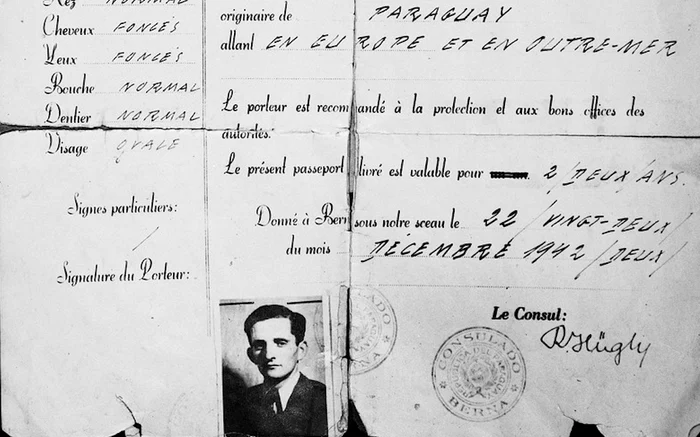 Nez NORMAL
Cheveux FONCÉS
Yeux FONCÉS
Bouche NORMAL
Dentier NORMAL
Visage OVALE
Signes particuliers: /
Signature du Porteur:
originaire de PARAGUAY
allant EN EUROPE ET EN OUTRE-MER
Le porteur est recommandé à la protection et aux bons offices des
autorités.
Le présent passeport livré est valable pour 2/DEUX/ANS.
Donné à Bern sous notre sceau le 22 /VINGT-DEUX/
du mois DÉCEMBRE 1942/DEUX/
Le Consul:
R. Hügly
CONSULADO
BERNA
CONSULADO
BERNA